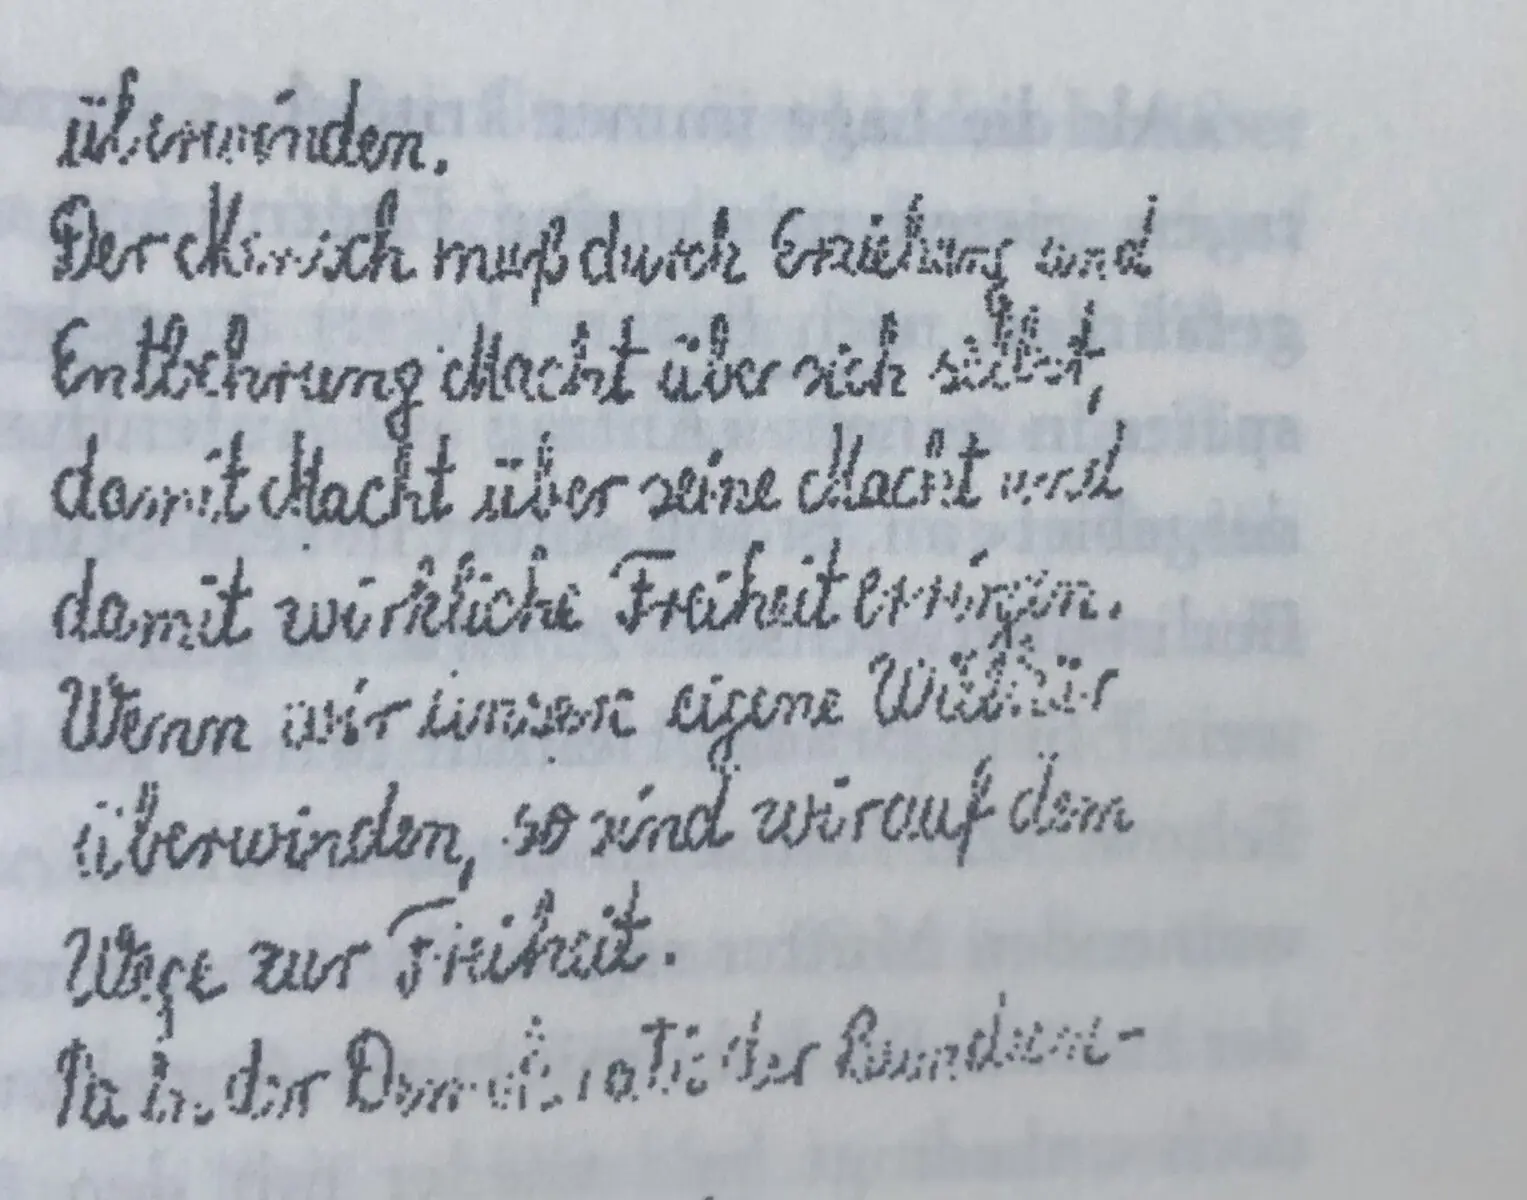 überwinden.
Der Mensch muß durch Erziehung und
Entbehrung Macht über sich selbst,
damit Macht über seine Macht und
damit wirkliche Freiheit erringen.
Wenn wir unsere eigene Willkür
überwinden, so sind wir auf dem
Wege zur Freiheit.
Da in der Demokratie der Bundes-